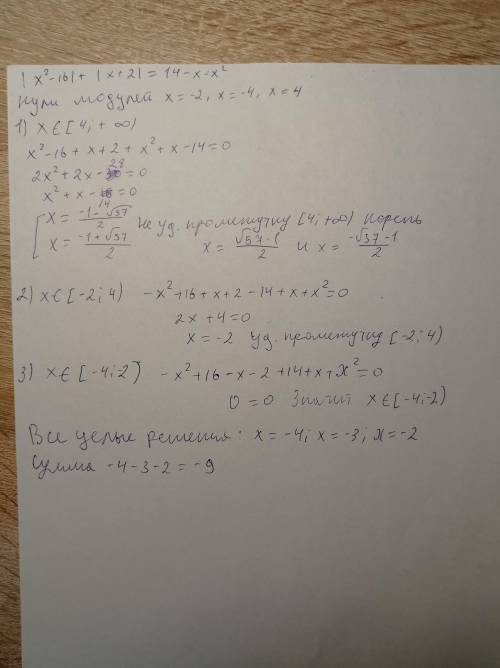 |x²-16| + |x+2| = 14-x-x²
Нули модулей x=-2, x=-4, x=4
1) x∈[4;+∞)
x²-16+x+2+x²+x-14=0
2x²+2x-28=0
x²+x-14=0
x = (-1-√57)/2 не уд. промежутку [4;+∞) корень
x = (-1+√57)/2 x = (√57-1)/2 и x = (-√37-1)/2
2) x∈[-2;4) -x²+16+x+2-14+x+x²=0
2x+4=0
x=-2 уд. промежутку [-2;4)
3) x∈[-4;-2) -x²+16-x-2+14+x+x²=0
0=0 Значит x∈[-4;-2)
Все целые решения: x=-4; x=-3; x=-2
Сумма -4-3-2=-9